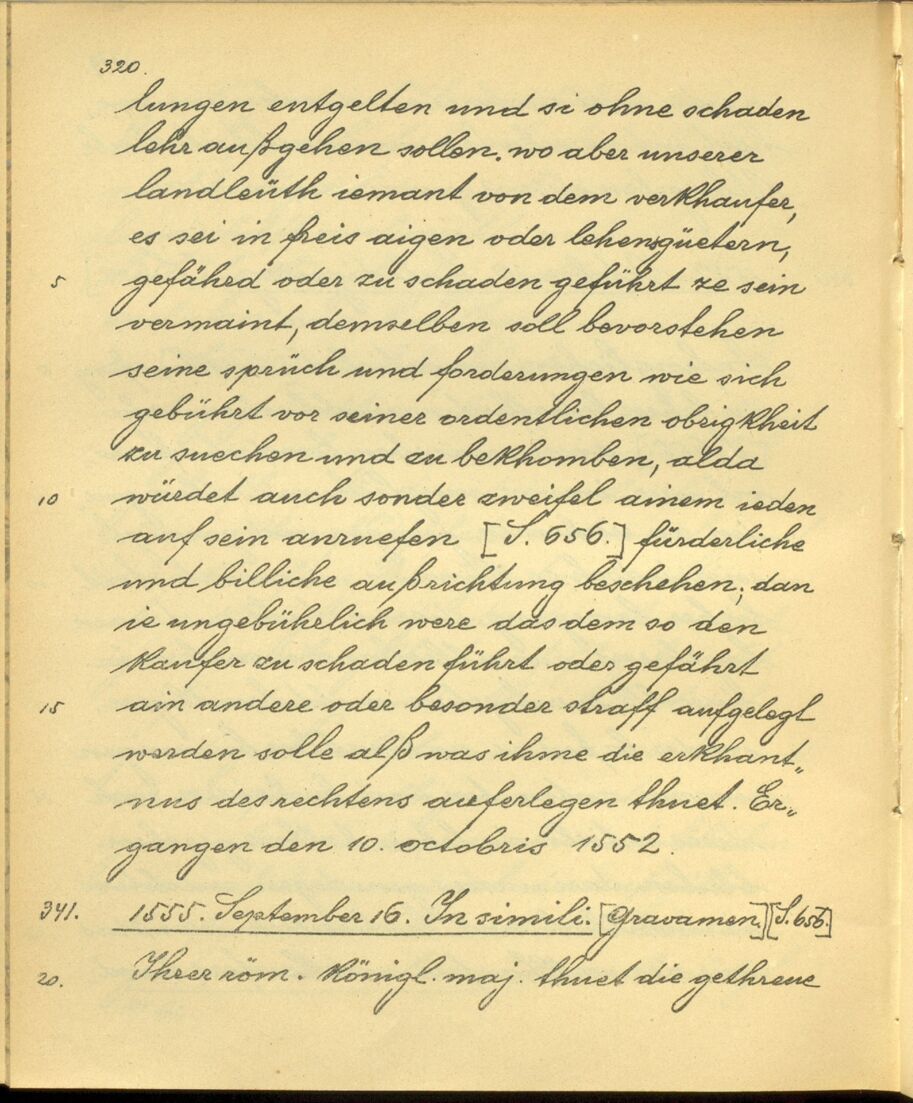 320.
lungen entgelten und si ohne schaden
lehr außgehen sollen. wo aber unserer
landleüth iemant von dem verkhaufer,
es sei in freis aigen oder lehensgüetern,
5 gefährd oder zu schaden geführt ze sein
vermaint, demselben soll bevorstehen
seine sprüch und forderungen wie sich
gebührt vor seiner ordentlichen obrigkheit
zu suechen und zu bekhomben, alda
10 würdet auch sonder zweifel ainem ieden
auf sein anruefen [S. 656.] fürderliche
und billiche außrichtung beschehen; dan
ie ungebührlich were das dem so den
kaufer zu schaden führt oder gefährt
15 ain andere oder besonder straff aufgelegt
werden solle alß was ihme die erkhant„
nus des rechtens auferlegen thuet. Er„
gangen den 10. octobris 1552.
341. 1555. September 16. In simili. [Gravamen.] [S. 656.]
20. Ihrer röm. königl. maj. thuet die gethreue